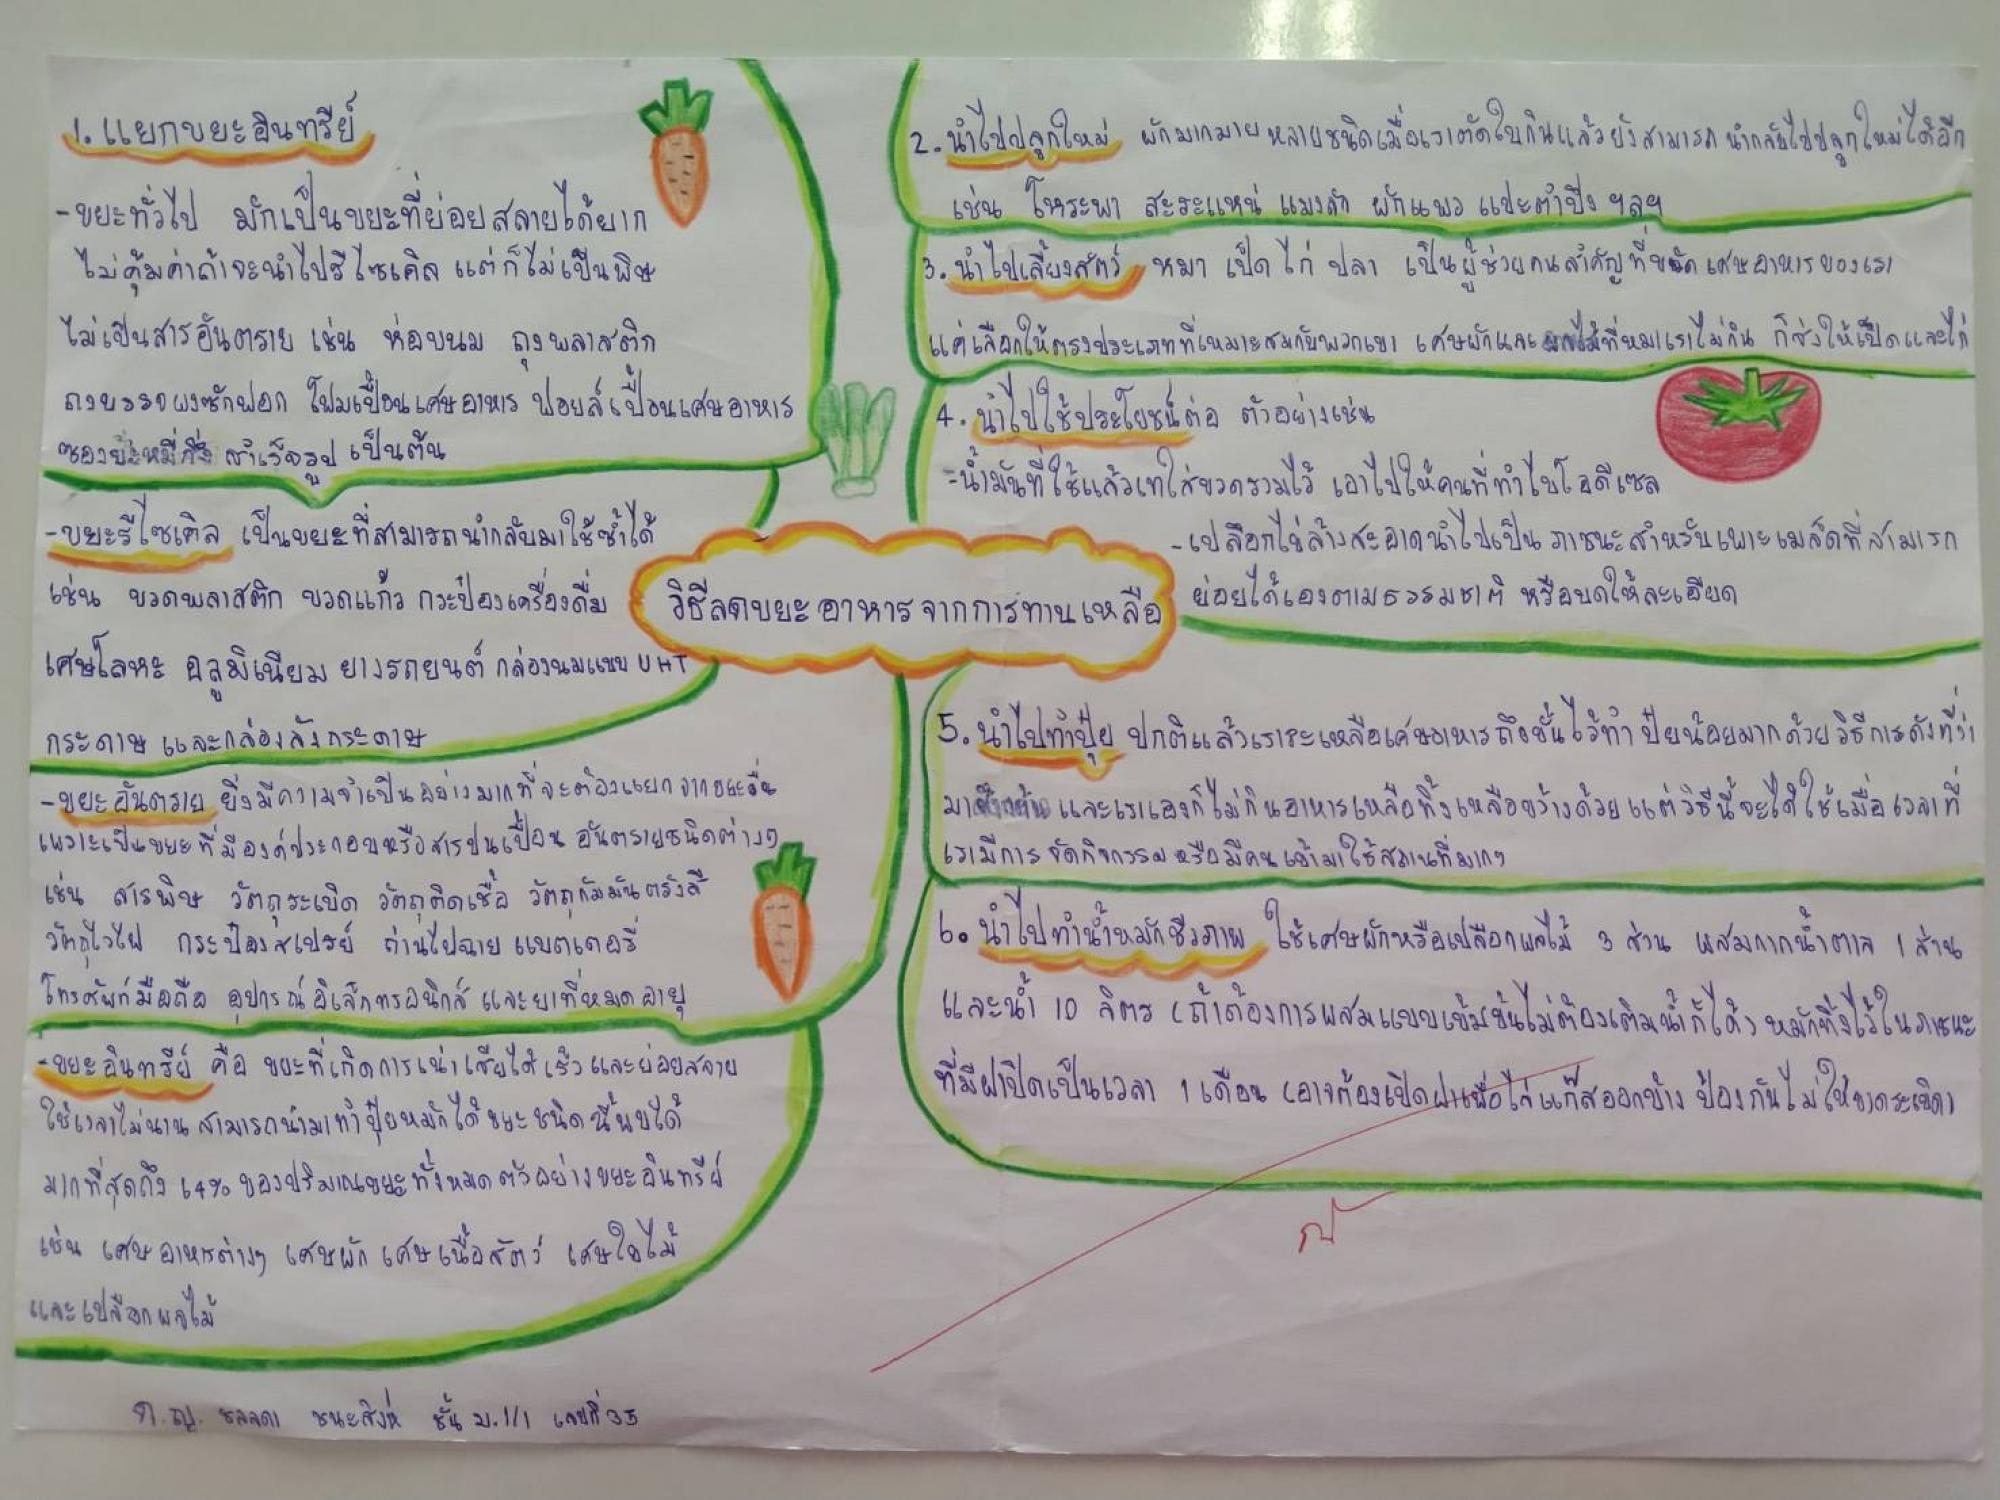 1. แยกขยะอินทรีย์
-ขยะทั่วไป มักเป็นขยะที่ย่อยสลายได้ยาก
ไม่คุ้มค่าถ้าจะนำไปรีไซเคิล แต่ก็ไม่เป็นพิษ
ไม่เป็นสารอันตราย เช่น ห่อขนม ถุงพลาสติก
ถุงบรรจุผงซักฟอก โฟมเปื้อนเศษอาหาร ฟอยล์เปื้อนเศษอาหาร
ซองบะหมี่กึ่งสำเร็จรูป เป็นต้น
-ขยะรีไซเคิล เป็นขยะที่สามารถนำกลับมาใช้ซ้ำได้
เช่น ขวดพลาสติก ขวดแก้ว กระป๋องเครื่องดื่ม
เศษโลหะ อลูมิเนียม ยางรถยนต์ กล่องนมแบบ UHT
กระดาษ และกล่องลังกระดาษ
-ขยะอันตราย ยิ่งมีความจำเป็นอย่างมากที่จะต้องแยกจากขยะอื่น
เพราะเป็นขยะที่มีองค์ประกอบหรือสารปนเปื้อน อันตรายชนิดต่างๆ
เช่น สารพิษ วัตถุระเบิด วัตถุติดเชื้อ วัตถุกัมมันตรังสี
วัตถุไวไฟ กระป๋องสเปรย์ ถ่านไฟฉาย แบตเตอรี่
โทรศัพท์มือถือ อุปกรณ์อิเล็กทรอนิกส์ และยาที่หมดอายุ
-ขยะอินทรีย์ คือ ขยะที่เกิดการเน่าเสียได้เร็วและย่อยสลาย
ใช้เวลาไม่นาน สามารถนำมาทำปุ๋ยหมักได้ ขยะชนิดนี้พบได้
มากที่สุดถึง 64% ของปริมาณขยะทั้งหมด ตัวอย่างขยะอินทรีย์
เช่น เศษอาหารต่างๆ เศษผัก เศษเนื้อสัตว์ เศษใบไม้
และเปลือกผลไม้
ด.ญ. ชลลดา ชนะสิงห์ ชั้น ม.1/1 เลขที่ 35
วิธีลดขยะอาหารจากการทานเหลือ
2. นำไปปลูกใหม่ ผักมากมายหลายชนิดเมื่อเราตัดใบกินแล้วยังสามารถ นำกลับไปปลูกใหม่ได้อีก
เช่น โหระพา สะระแหน่ แมงลัก ผักแพว แปะตำปึง ฯลฯ
3. นำไปเลี้ยงสัตว์ หมา เป็ด ไก่ ปลา เป็นผู้ช่วยคนสำคัญที่ขจัดเศษอาหารของเรา
แค่เลือกให้ตรงประเภทที่เหมาะสมกับพวกเขา เศษผักและผลไม้ที่หมาเราไม่กิน ก็ส่งให้เป็ดและไก่
4. นำไปใช้ประโยชน์ต่อ ตัวอย่างเช่น
-น้ำมันที่ใช้แล้วเทใส่ขวดรวมไว้ เอาไปให้คนที่ทำไบโอดีเซล
-เปลือกไข่ล้างสะอาดนำไปเป็นภาชนะสำหรับเพาะเมล็ดที่สามารถ
ย่อยได้เองตามธรรมชาติ หรือบดให้ละเอียด
5. นำไปทำปุ๋ย ปกติแล้วเราจะเหลือเศษอาหารถึงขั้นไว้ทำปุ๋ยน้อยมากด้วยวิธีการดังที่ว่า
มา และเราเองก็ไม่กินอาหารเหลือทิ้งเหลือขว้างด้วย แต่วิธีนี้จะได้ใช้เมื่อเวลาที่
เรามีการจัดกิจกรรมหรือมีคนเข้ามาใช้สถานที่มากๆ
6. นำไปทำน้ำหมักชีวภาพ ใช้เศษผักหรือเปลือกผลไม้ 3 ส่วน ผสมกากน้ำตาล 1 ส่วน
และน้ำ 10 ลิตร (ถ้าต้องการผสมแบบเข้มข้นไม่ต้องเติมน้ำก็ได้) หมักทิ้งไว้ในภาชนะ
ที่มีฝาปิดเป็นเวลา 1 เดือน (อาจต้องเปิดฝาเพื่อไล่แก๊สออกบ้าง ป้องกันไม่ให้ขวดระเบิด)